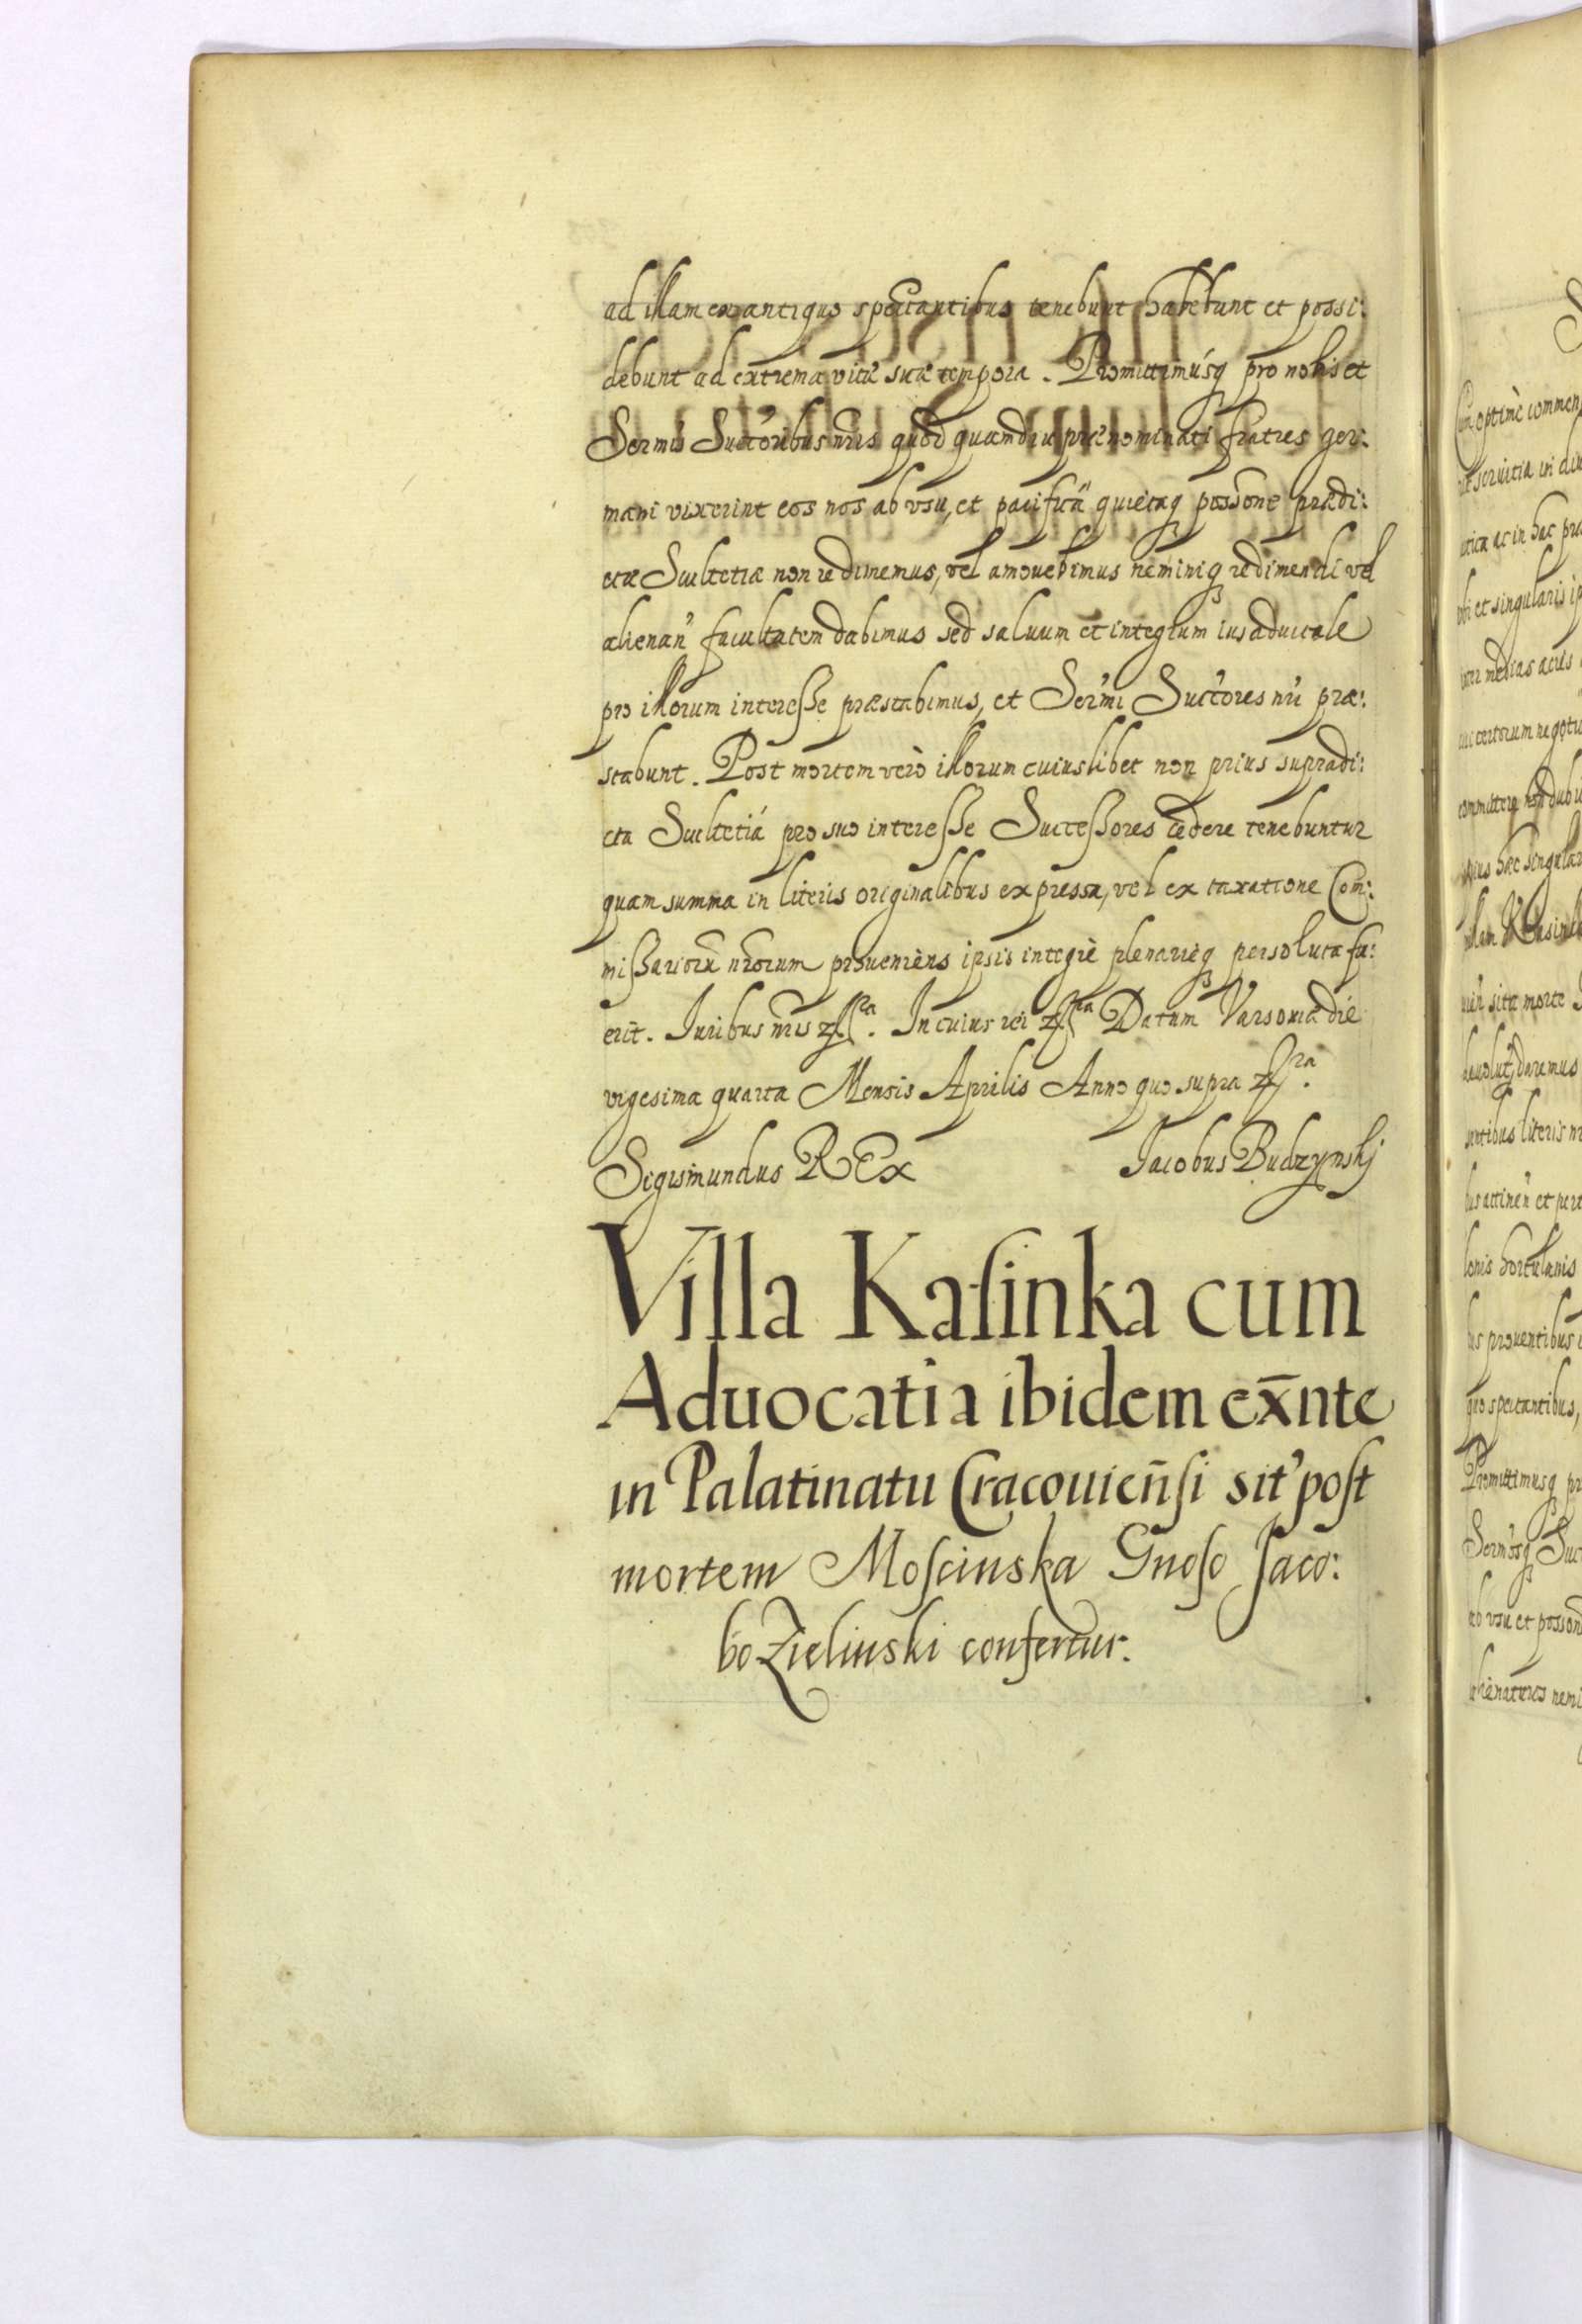 ad illam ex antiquo spectantibus tenebunt habebunt et possi:
debunt ad extrema vitæ suæ tempora. Promittimusq₃ pro nobis et
Sermis Succoribus nris quod quamdiu prænominati fratres ger:
mani vixerint eos nos ab vsu, et pacifica quietaq₃ possone prædi:
ctæ Scultetiæ non redimemus, vel amouebimus neminiq₃ redimendi vel
alienan' facultatem dabimus sed saluum et integrum ius aduitale
pro illorum interesse præstabimus, et Ser'mi Succ'ores nri præ:
stabunt. Post mortem verò illorum cuiuslibet non prius supradi:
cta Scultetiá pro suo interesse Successores cedere tenebuntur
quam summa in literis originalibus expressa, vel ex taxatione Com:
missariorū nrorum proueniens ipsis integrè plenarieq₃ persoluta fu:
erit. Iuribus nris etc. In cuius rei etc. Datum Varsouiæ die
vigesima quarta Mensis Aprilis Anno quo supra etc.
Sigismundus REx Jacobus Budzynskj
Villa Kasinka cum
Aduocatia ibidem ex̄nte
in Palatinatu Cracouien̄si sit' post
mortem Moscinska Gnoso Jaco:
bo Zielinski confertur.